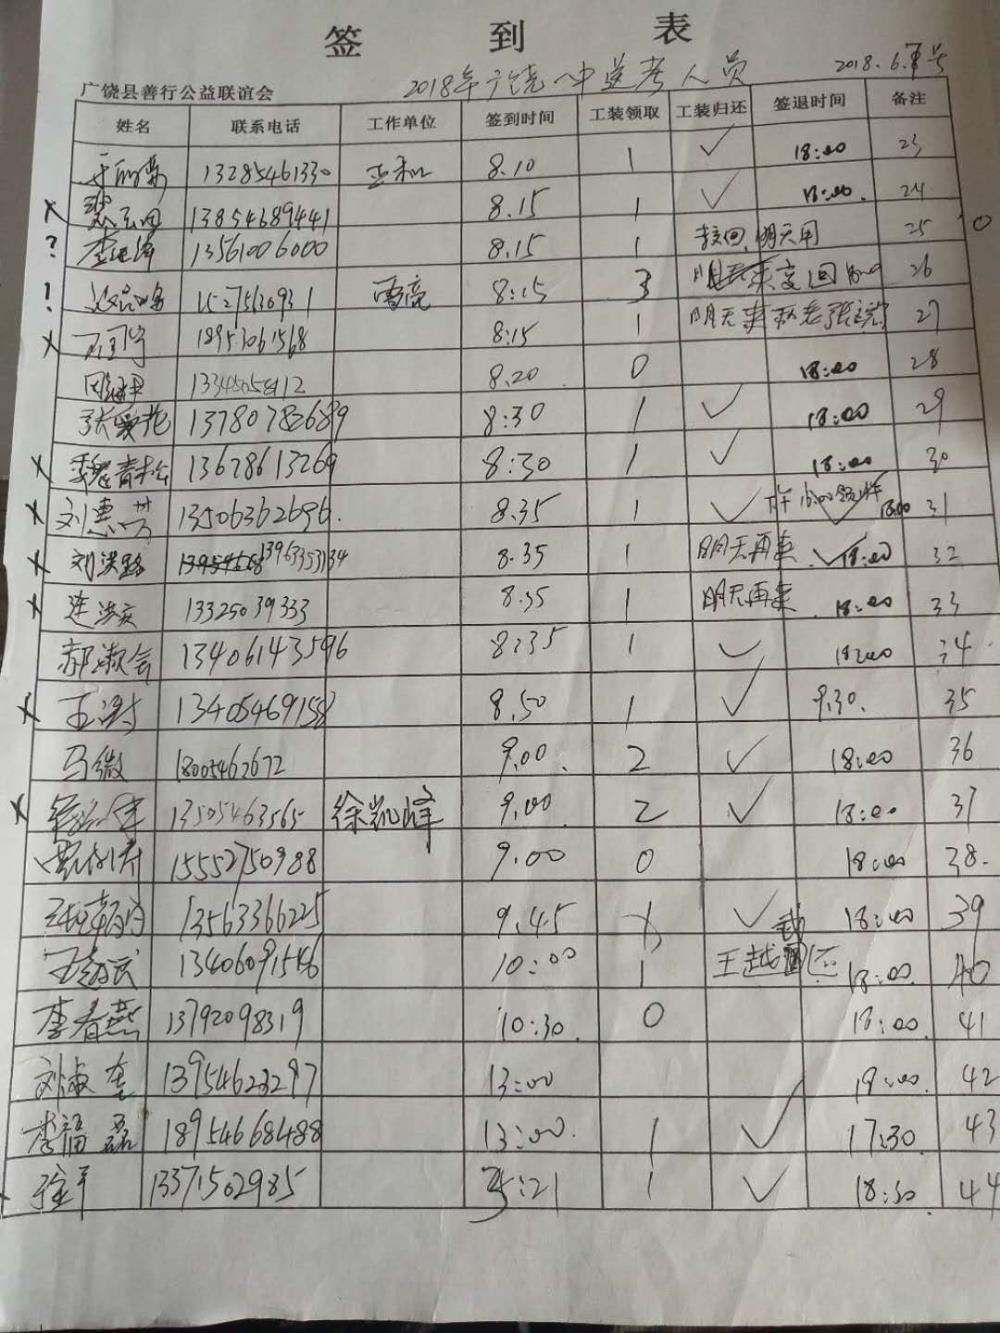 签 到 表
2018年广饶一中送考人员 2018.6. 号
广饶县善行公益联谊会
姓名 联系电话 工作单位 签到时间 工装领取 工装归还 签退时间 备注
13285461330 8.10 1 ✓ 18:00 23
x 13854689441 8.15 1 ✓ 18:00 24
? 13561006000 8.15 1 明天用 25 0
! 15275630931 雷亮 8:15 3 26
x 18953061568 8:15 1 明天来 27
8.20 0 18:00 28
张爱花 13780782689 8:30 1 ✓ 18:00 29
x 魏青松 13678613269 8:30 1 ✓ 18:00 30
x 刘惠芳 13506362696. 8.35 1 ✓ 18:00 31
x 刘洪 13963353134 8.35 1 明天再来 ✓ 18:00 32
x 连洪 13325039333 8.35 1 明天再来 18:00 33
郝淑会 13406143596 8:35 1 ✓ 18:00 34
x 王 13405469158 8.50 1 ✓ 9.30. 35
马微 18005462672 9.00. 2 ✓ 18:00 36
x 13505463565 徐凯峰 9.00 2 ✓ 18:00 37
15552750988 9.00 0 18:00 38.
13563366225 9.45 ✓ 18:00 39
13406091546 10:00 1 王越 18:00 40
李春燕 13792098319 10:30 0 18:00 41
刘 奎 13954623297 13:00 19:00. 42
李福磊 18954668488 13:00. 1 ✓ 17:30 43
13371502985 :21 1 ✓ 18:30 44